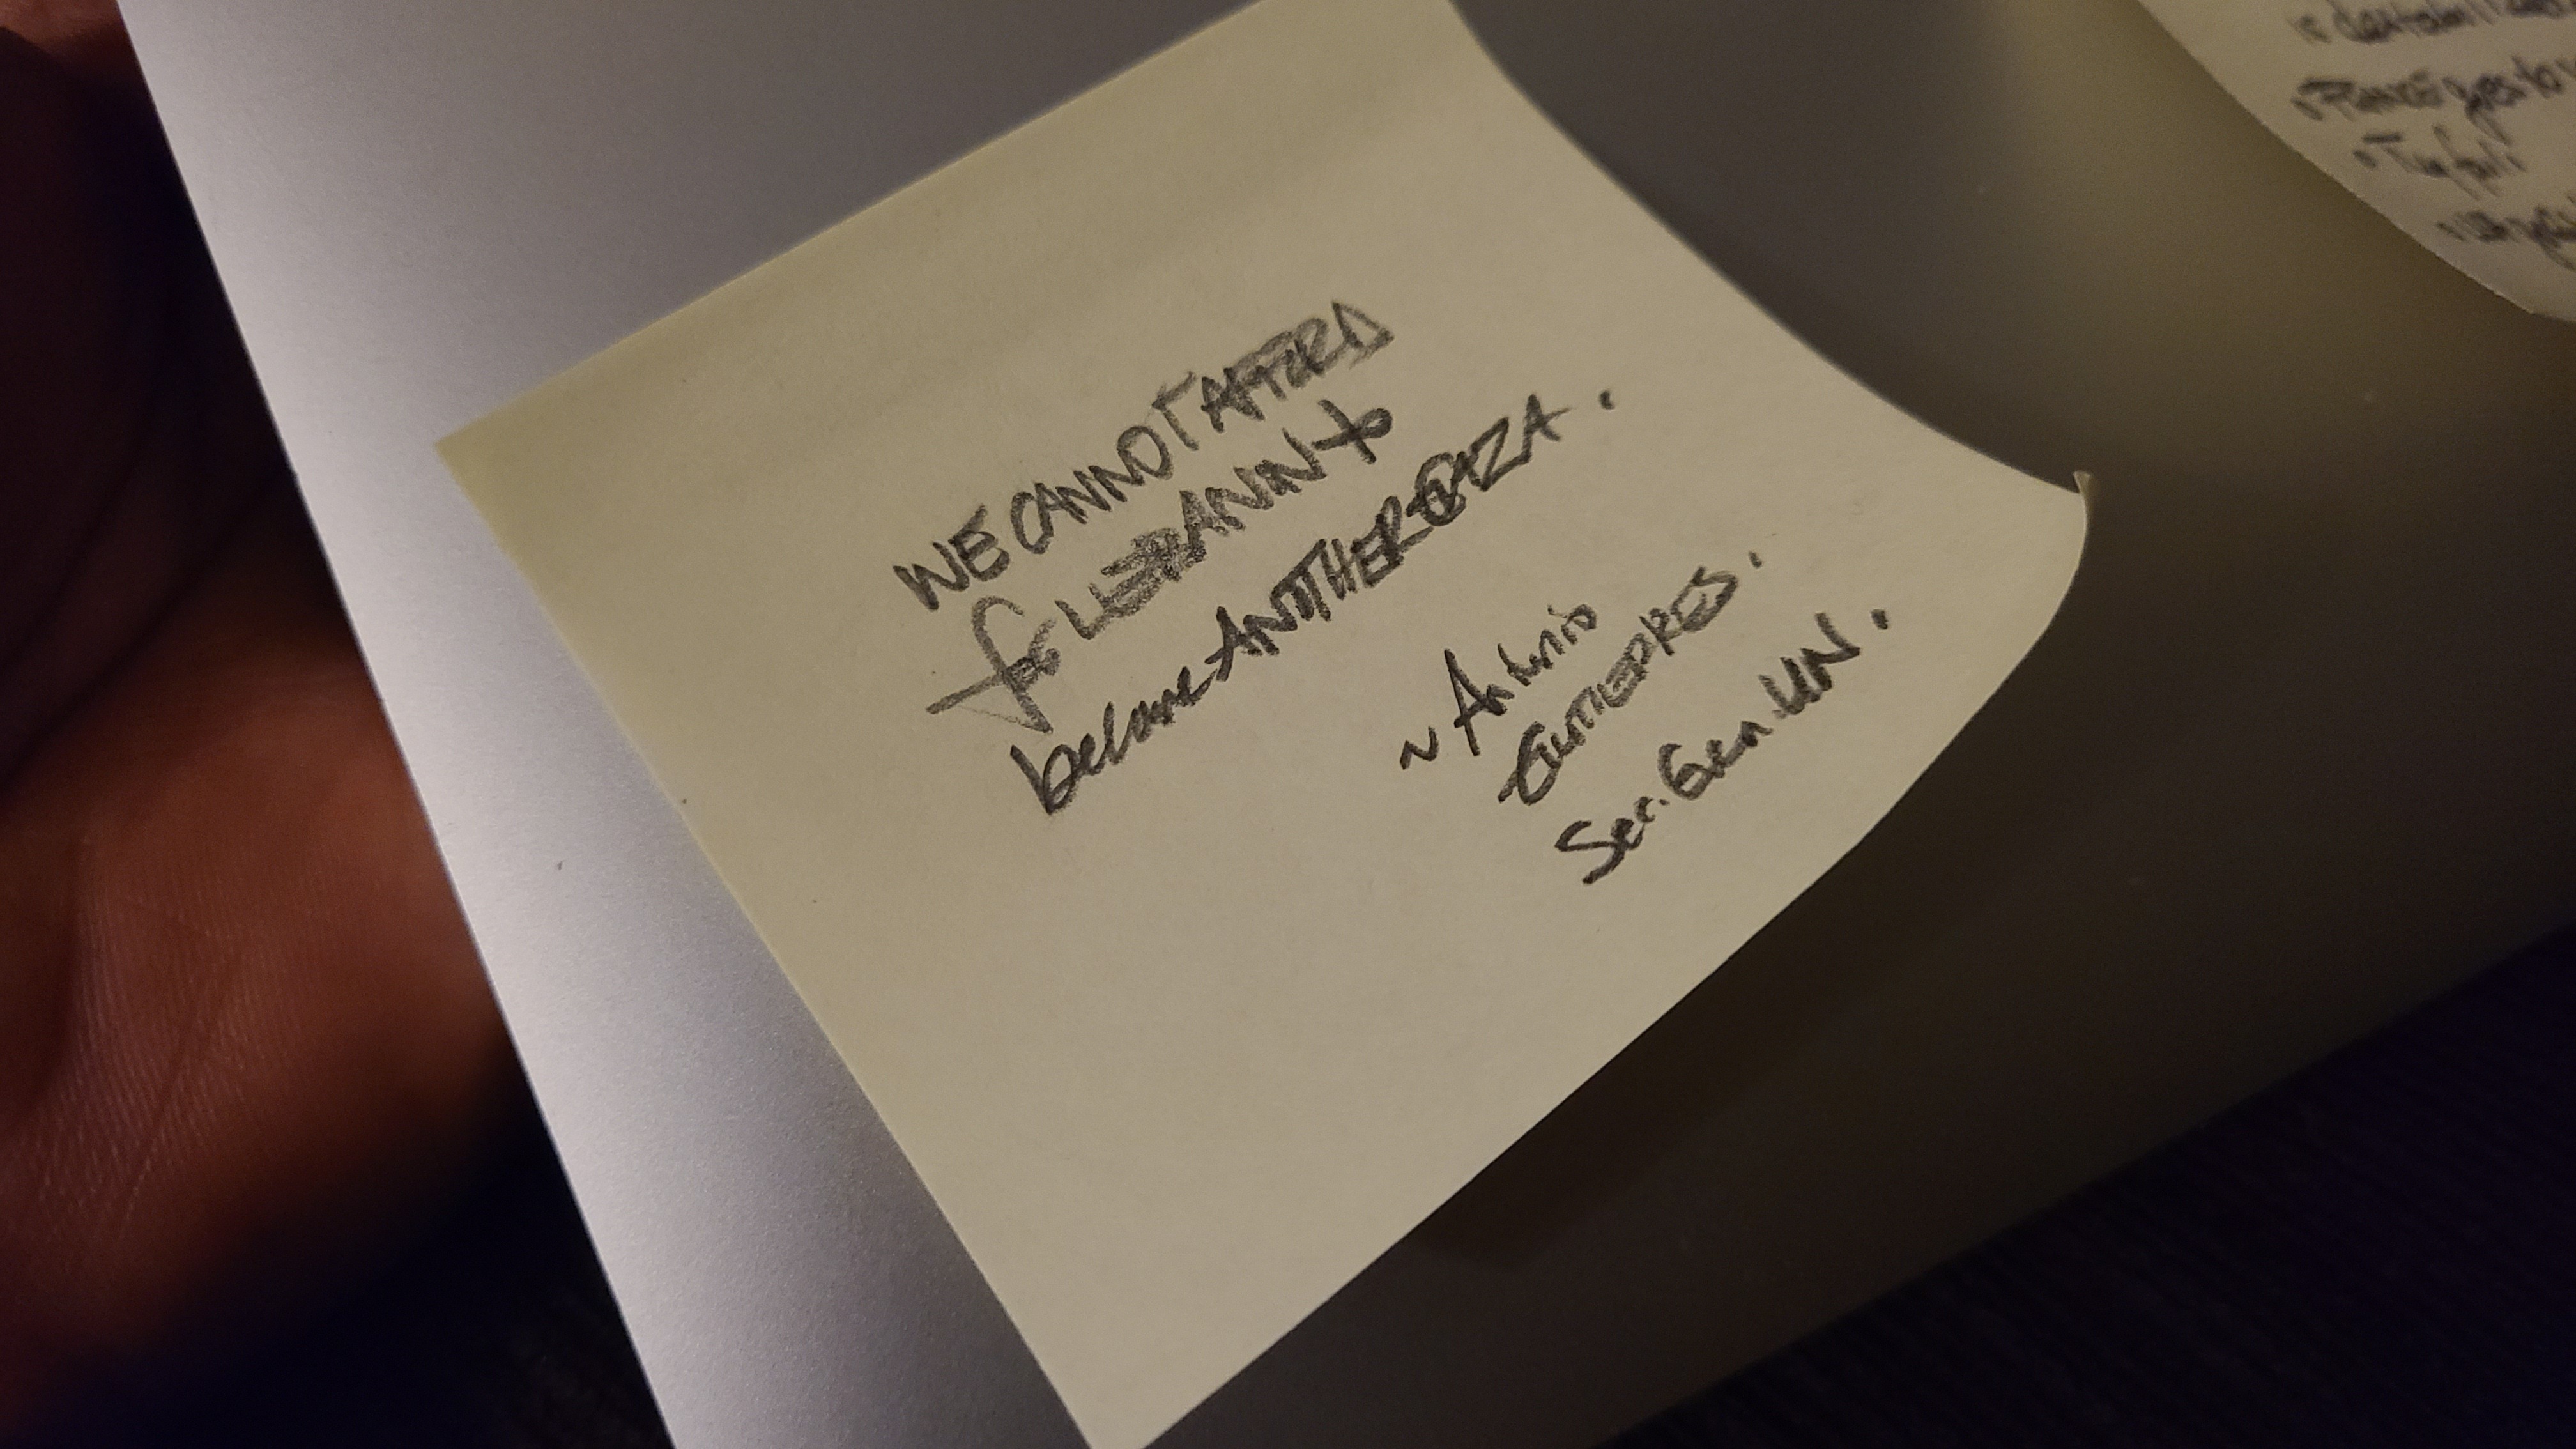 WE CANNOT AFFORD
for LEBANNN to
become ANOTHER GAZA.
~ Antonio
GUTIERRES.
Sec. Gen. UN.
goes to